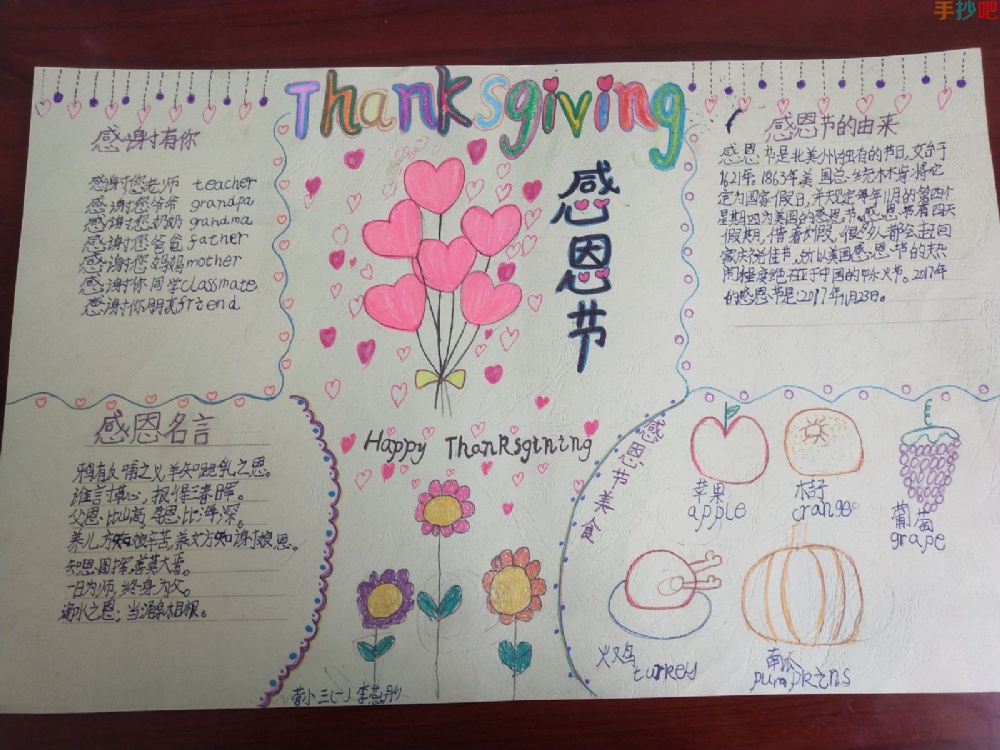 手抄吧
Thanksgiving
感恩节
感谢有你
感谢您老师 teacher
感谢您爷爷 grandpa
感谢您奶奶 grandma
感谢您爸爸 father
感谢您妈妈 mother
感谢你同学 classmate
感谢你朋友 friend
感恩节的由来
感恩节是北美州独有的节日,始于
1621年。1863年美国总统林肯将它
定为国家假日,并规定每年11月的第四个
星期四为美国的感恩节。感恩节有四天
假期,借着长假,很多人都会赶回
家庆祝佳节,所以美国感恩节的热
闹程度绝不亚于中国的中秋节。2017年
的感恩节是2017年11月23日。
感恩名言
鸦有反哺之义,羊知跪乳之恩。
谁言寸草心,报得三春晖。
父恩比山高,母恩比海深。
养儿方知娘辛苦,养女方知谢娘恩。
知恩图报,善莫大焉。
一日为师,终身为父。
滴水之恩,当涌泉相报。
Happy Thanksgining
感恩节美食
苹果
apple
桔子
orange
葡萄
grape
火鸡
turkey
南瓜
pumpkins
三(一)李